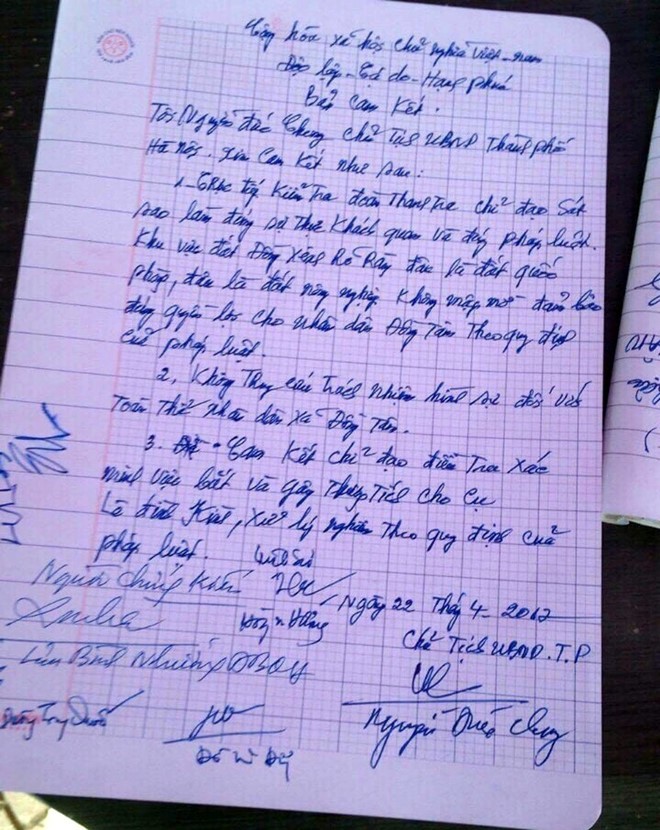 Cộng hòa xã hội chủ nghĩa Việt-nam
Độc lập - Tự do - Hạnh phúc
Bản Cam Kết.
Tôi Nguyễn đức Chung chủ tịch UBND Thành phố
Hà nội. Xin Cam Kết như sau:
1- Trực tiếp Kiểm Tra đoàn Thanh Tra chỉ đạo Sát
sao làm đúng sự thật khách quan và đúng pháp luật.
Khu vực đất Đồng Xênh Rõ Ràng đâu là đất quốc
phòng, đâu là đất nông nghiệp không mập mờ đảm bảo
đúng quyền lợi cho nhân dân Đồng Tâm Theo quy định
của pháp luật.
2, Không Truy cứu trách nhiệm hình sự đối với
Toàn Thể nhân dân xã Đồng Tâm.
3. Cam Kết chỉ đạo điều Tra Xác
minh Việc bắt và gây Thương Tích cho Cụ
Lê đình Kình, Xử lý nghiêm Theo quy định của
pháp luật.
Người Chứng Kiến
Ngày 22 Tháng 4-2017
Chủ Tịch UBND.T.P
Lưu Bình Nhưỡng ĐBQH
Nguyễn Đức Chung